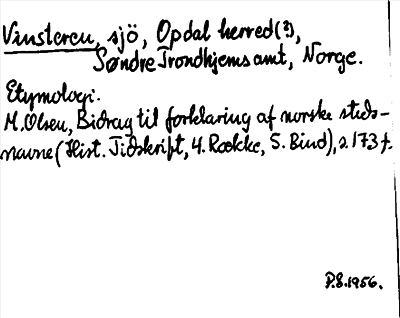 Vinsteren, sjö, Opdal herred(?),
Søndre Trondhjems amt, Norge.
Etymologi.
M. Olsen, Bidrag til forklaring af norske steds-
navne (Hist. Tidskrift, 4. Række, 5. Bind), s. 173 f.
P.S. 1956.